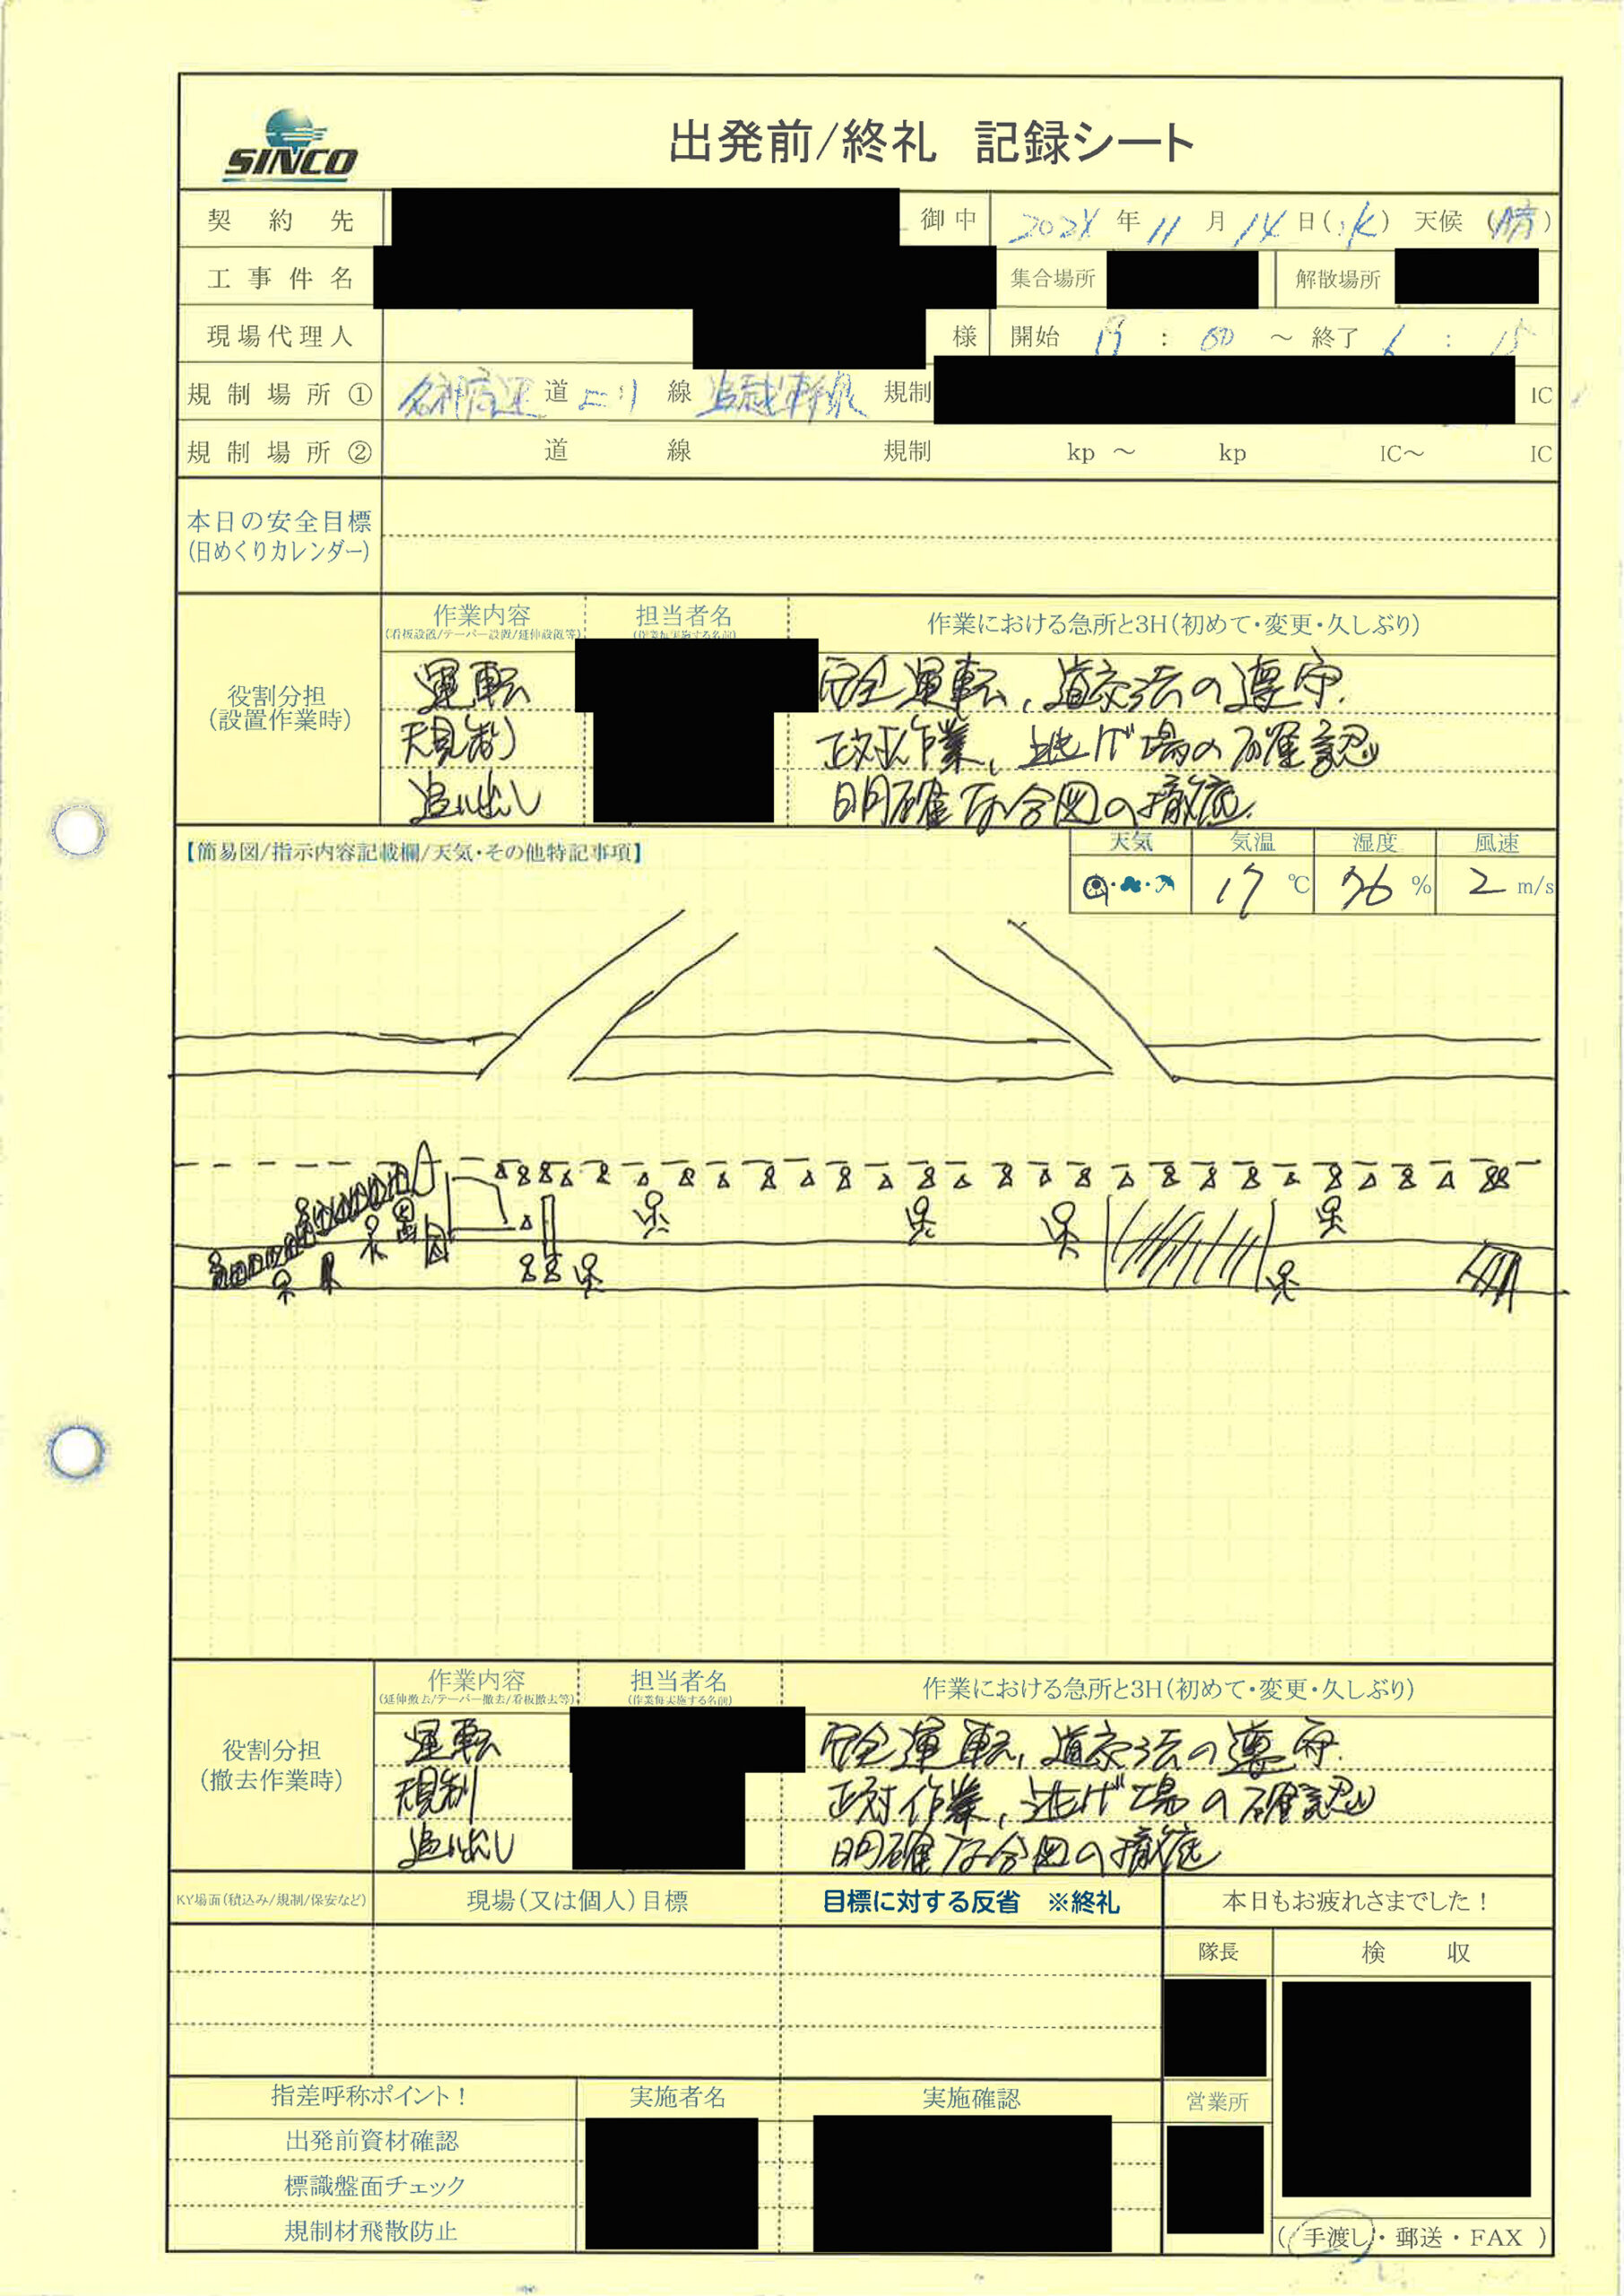 SINCO
出発前/終礼 記録シート
契約先 御中 2024年11月14日(水) 天候(晴)
工事件名 集合場所 解散場所
現場代理人 様 開始 19: ～ 終了 6:15
規制場所① 名神高速道 上り線 追越 規制 IC
規制場所② 道 線 規制 kp ～ kp IC～ IC
本日の安全目標
(日めくりカレンダー)
作業内容 担当者名 作業における急所と3H(初めて・変更・久しぶり)
(看板設置/テーパー設置/延伸設置等) (作業毎実施する名前)
役割分担
(設置作業時)
運転 安全運転、道交法の遵守.
規制 正対作業、逃げ場の確認
追い出し 明確な合図の徹底.
【簡易図/指示内容記載欄/天気・その他特記事項】
天気 気温 湿度 風速
17℃ 76% 2m/s
作業内容 担当者名 作業における急所と3H(初めて・変更・久しぶり)
(延伸撤去/テーパー撤去/看板撤去等) (作業毎実施する名前)
役割分担
(撤去作業時)
運転 安全運転、道交法の遵守.
規制 正対作業、逃げ場の確認
追い出し 明確な合図の徹底
KY場面(積込み/規制/保安など) 現場(又は個人)目標 目標に対する反省 ※終礼 本日もお疲れさまでした!
隊長 検収
指差呼称ポイント! 実施者名 実施確認 営業所
出発前資材確認
標識盤面チェック
規制材飛散防止
(手渡し・郵送・FAX)